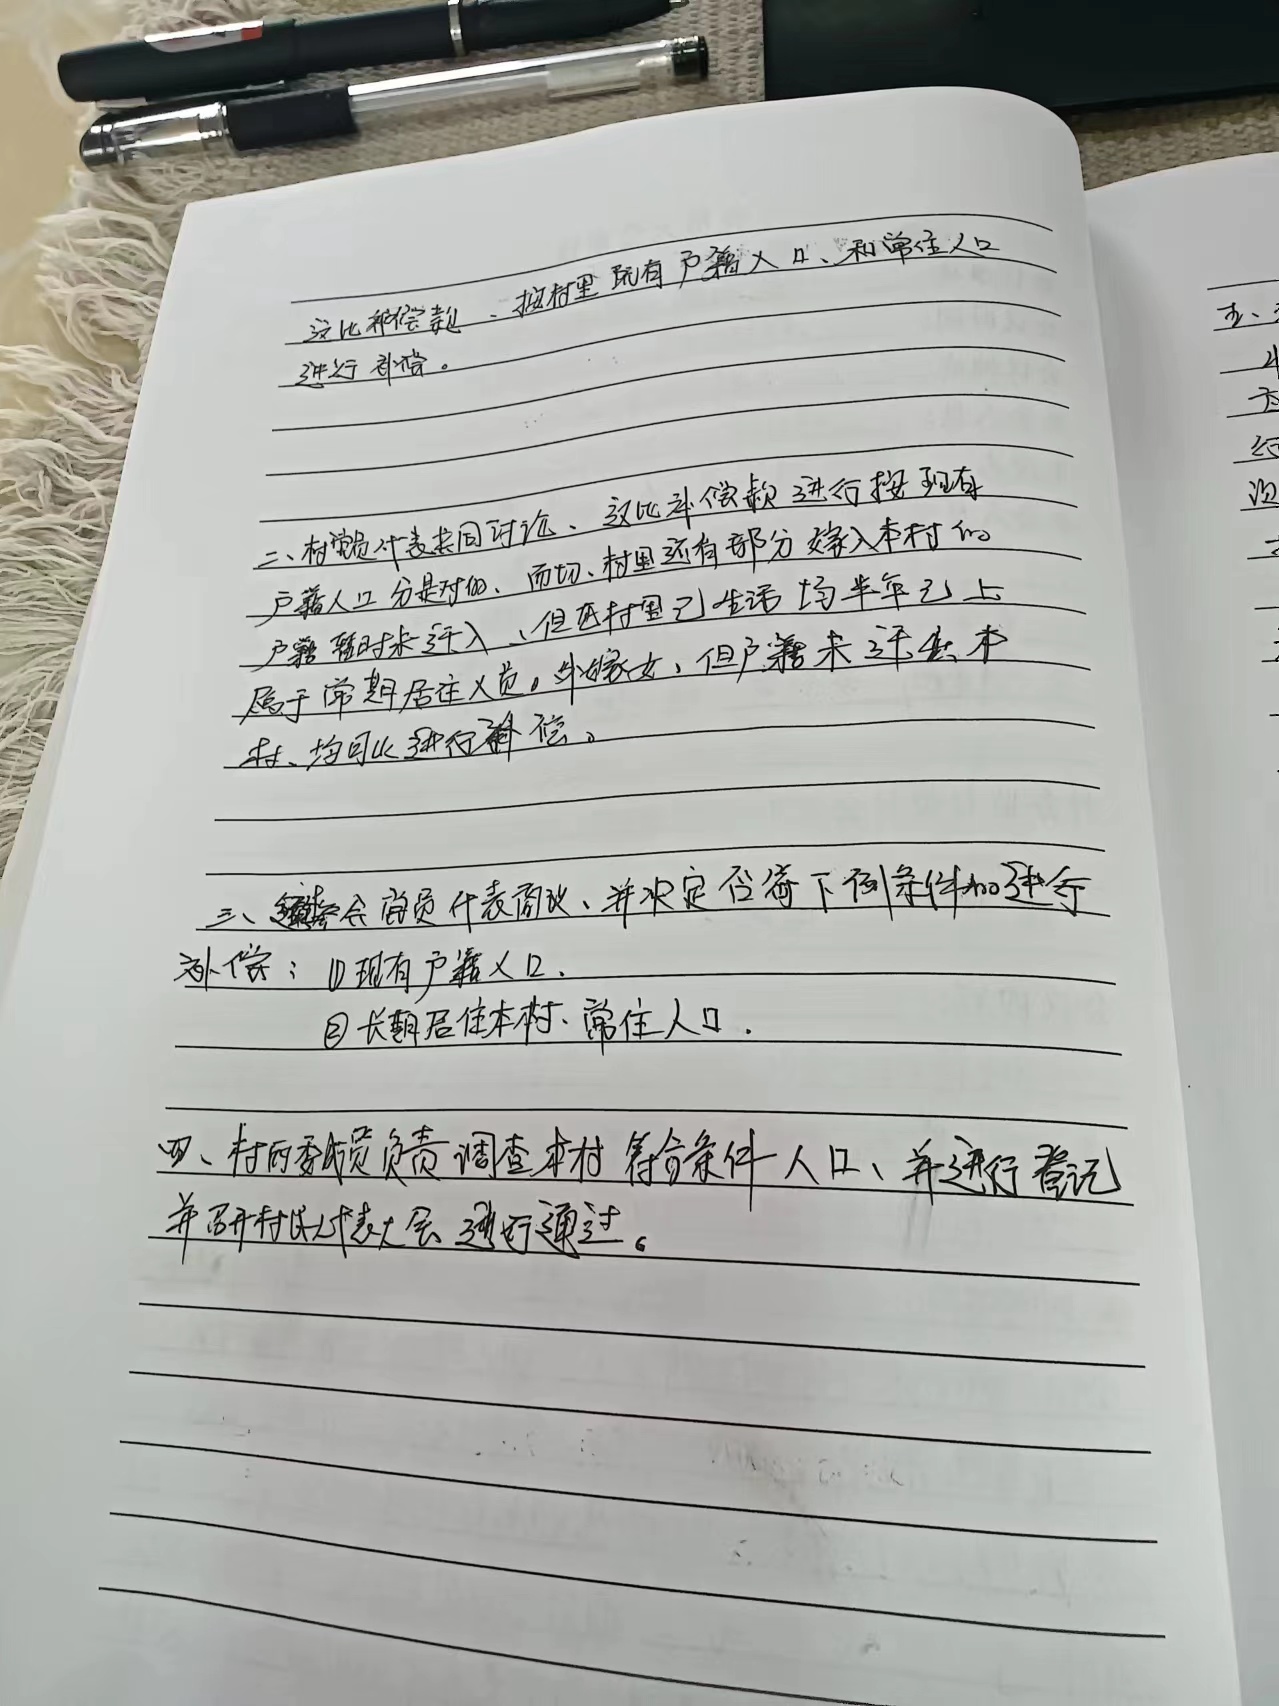 这比补偿款、按村里现有户籍人口、和常住人口
进行补偿。
二、村党员代表共同讨论、这比补偿款进行按现有
户籍人口分是对的、而切、村里还有部分嫁入本村的
户籍暂时未迁入、但在村里已生活均半年已上
属于常期居住人员。外嫁女、但户籍未迁出本
村、均可以进行补偿。
三、会党员代表商议、并决定否符下例条件的进行
补偿：①现有户籍人口、
②长期居住本村、常住人口.
四、村两委成员负责调查本村符合条件人口、并进行登记
并召开村民代表大会进行通过。
五、